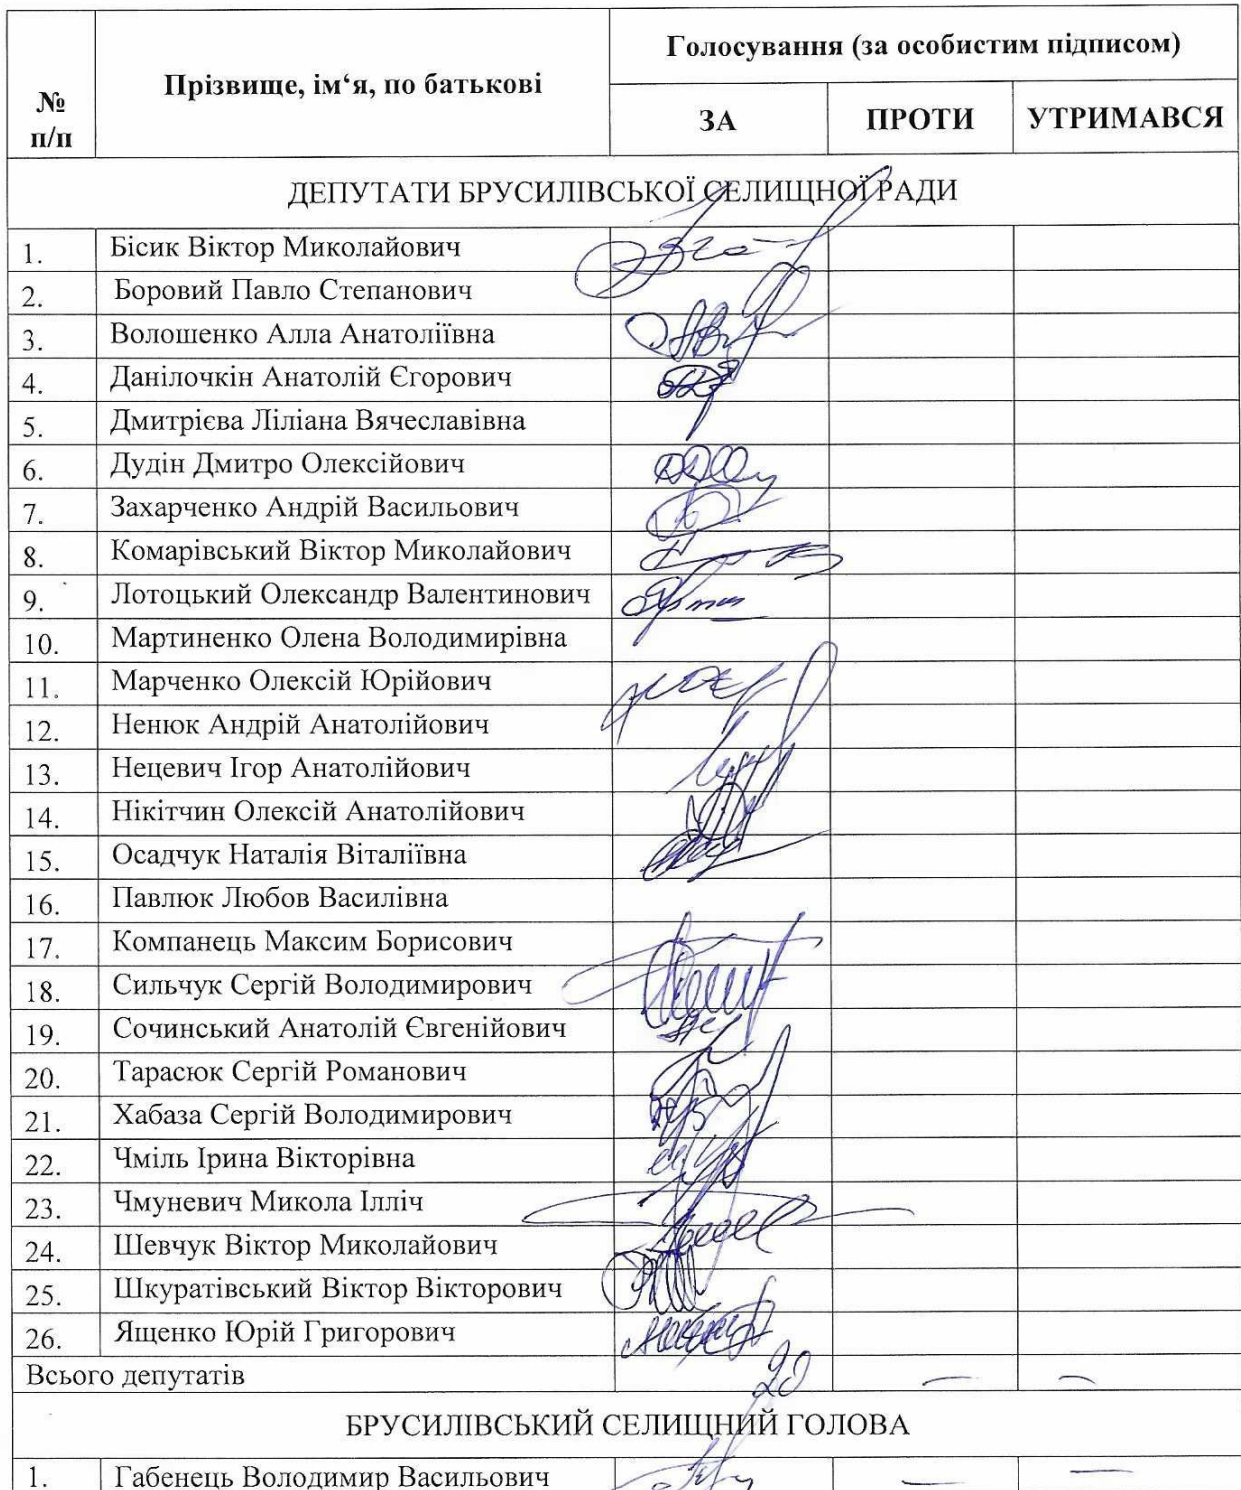 № п/п
Прізвище, ім‘я, по батькові
Голосування (за особистим підписом)
ЗА ПРОТИ УТРИМАВСЯ
ДЕПУТАТИ БРУСИЛІВСЬКОЇ СЕЛИЩНОЇ РАДИ
1. Бісик Віктор Миколайович
2. Боровий Павло Степанович
3. Волошенко Алла Анатоліївна
4. Данілочкін Анатолій Єгорович
5. Дмитрієва Ліліана Вячеславівна
6. Дудін Дмитро Олексійович
7. Захарченко Андрій Васильович
8. Комарівський Віктор Миколайович
9. Лотоцький Олександр Валентинович
10. Мартиненко Олена Володимирівна
11. Марченко Олексій Юрійович
12. Ненюк Андрій Анатолійович
13. Нецевич Ігор Анатолійович
14. Нікітчин Олексій Анатолійович
15. Осадчук Наталія Віталіївна
16. Павлюк Любов Василівна
17. Компанець Максим Борисович
18. Сильчук Сергій Володимирович
19. Сочинський Анатолій Євгенійович
20. Тарасюк Сергій Романович
21. Хабаза Сергій Володимирович
22. Чміль Ірина Вікторівна
23. Чмуневич Микола Ілліч
24. Шевчук Віктор Миколайович
25. Шкуратівський Віктор Вікторович
26. Ященко Юрій Григорович
Всього депутатів 20 — —
БРУСИЛІВСЬКИЙ СЕЛИЩНИЙ ГОЛОВА
1. Габенець Володимир Васильович — —